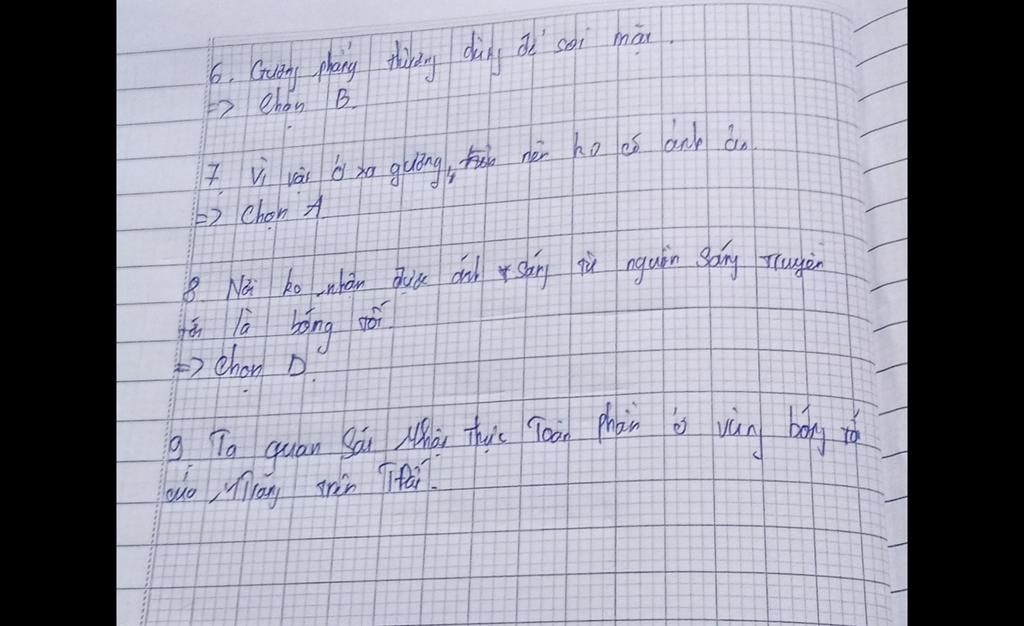 6. Gương phẳng thường dùng để soi mặt.
=> Chọn B.
7. Vì vật ở xa gương, nên ko có ảnh ảo.
=> Chọn A
8. Nơi ko nhận được ánh sáng từ nguồn sáng truyền
tới là bóng tối.
=> Chọn D.
9. Ta quan sát Nhật thực Toàn phần ở vùng bóng tối
của Mtrăng trên TĐất.